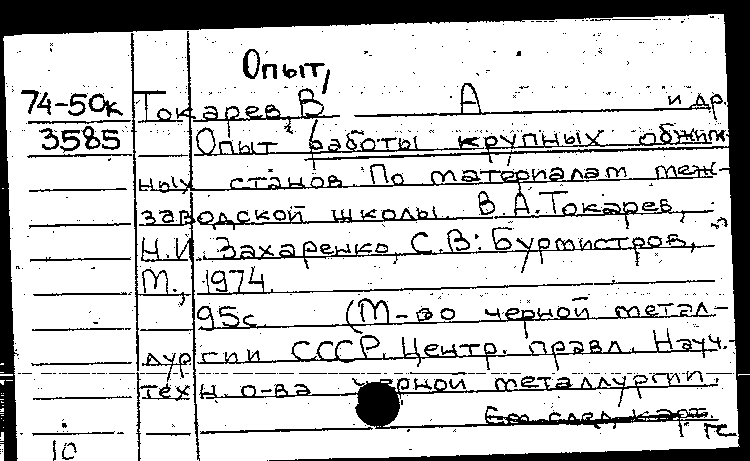 Опыт,
74-50к Токарев, В А и др.
3585 Опыт работы крупных обжим-
ных станов. По материалам меж-
заводской школы. В.А.Токарев,
Н.И. Захаренко, С.В. Бурмистров,
М., 1974.
95с (М-во черной метал-
лургии СССР. Центр. правл. Науч.-
техн. о-ва черной металлургии.
См след. карт.
10